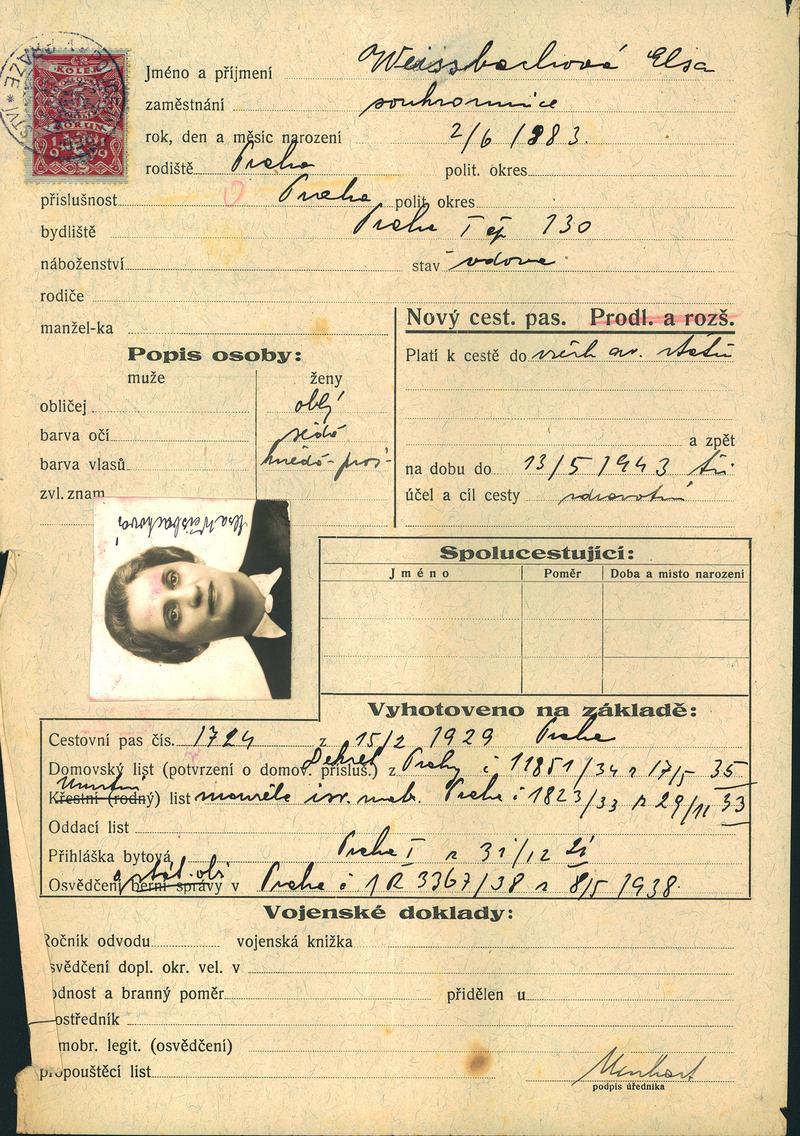 KOLEK
KORUN
1919
Jméno a příjmení Weissbachová Elsa
zaměstnání soukromnice
rok, den a měsíc narození 2/6 1883.
rodiště Praha polit. okres
příslušnost Praha polit. okres
bydliště Praha I čp 130
náboženství stav vdova
rodiče
manžel-ka
Nový cest. pas. Prodl. a rozš.
Popis osoby:
muže ženy
obličej oblý
barva očí šedá
barva vlasů hnědá-
zvl. znam.
Platí k cestě do všech států
a zpět
na dobu do 13/5 1943
účel a cíl cesty zdravotní
Elsa Weissbachová
Spolucestující:
Jméno Poměr Doba a místo narození
Vyhotoveno na základě:
Cestovní pas čís. 1724 z 15/2 1929 Praha
Dekret
Domovský list (potvrzení o domov. přísluš.) z Prahy č 11851/34 z 17/5 35
Křestní (rodný) list isr. Praha č 1823/33 z 29/11 33
Oddací list
Přihláška bytová Praha I z 31/12 21
Osvědčení berní správy v Praha č 1R 3367/38 z 8/5 1938.
Vojenské doklady:
Ročník odvodu vojenská knížka
svědčení dopl. okr. vel. v
odnost a branný poměr přidělen u
ostředník
mobr. legit. (osvědčení)
propouštěcí list
podpis úředníka